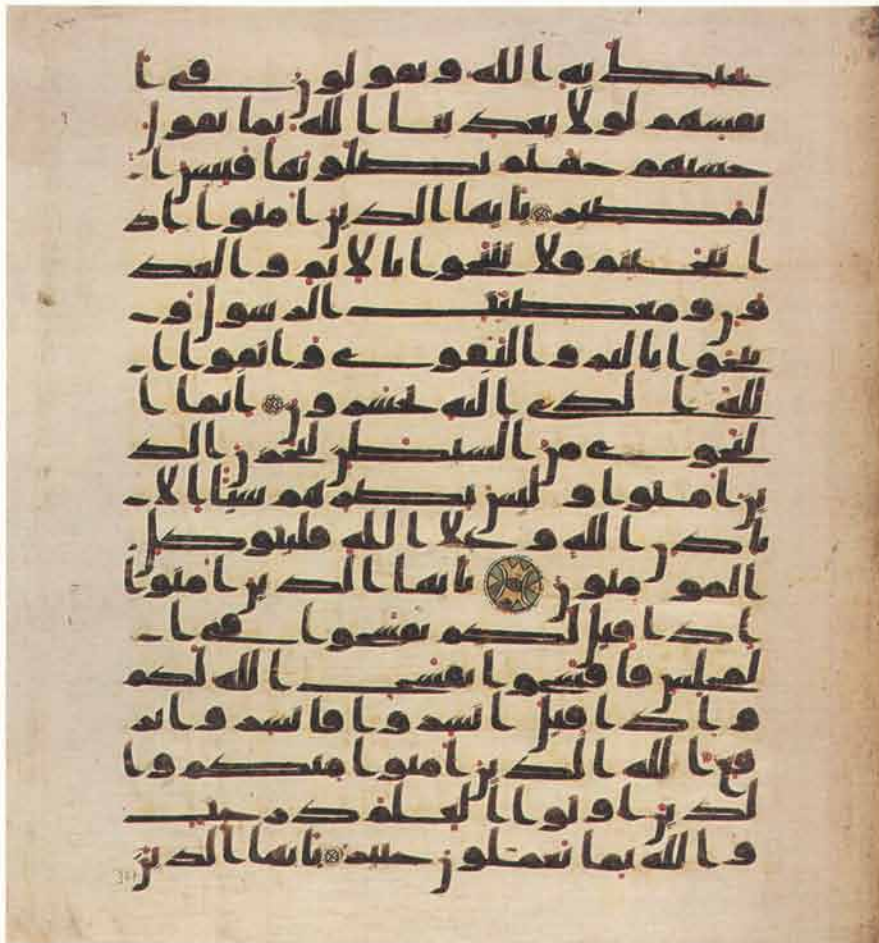 يحيك به الله ويقولون في ا
نفسهم لولا يعذبنا الله بما نقول
حسبهم جهنم يصلونها فبئس ا
لمصير يايها الذين امنوا اذ
ا تنجيتم فلا تتنجوا بالاثم والعد
ون ومعصيت الرسول و
تنجوا بالبر والتقوى واتقوا ا
لله الذي اليه تحشرون انما ا
لنجوى من الشيطن ليحزن الذ
ين امنوا وليس بضرهم شيا الا
باذن الله وعلى الله فليتوكل
المومنون يايها الذين امنوا
اذا قيل لكم تفسحوا في ا
لمجلس فافسحوا يفسح الله لكم
واذا قيل انشزوا فانشزوا ير
فع الله الذين امنوا منكم وا
لذين اوتوا العلم درجت
والله بما تعملون خبير يايها الذين